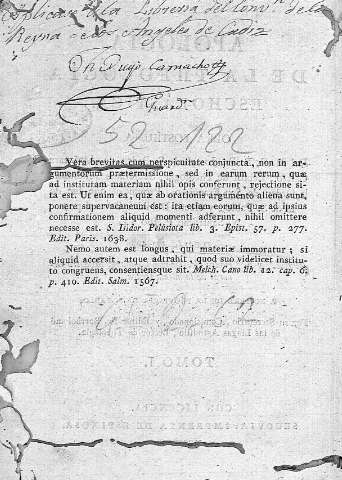 Aplicase a la Libreria del Conv.to de la
Reyna de los Angeles de Cadiz
Fr. Diego Camacho
Guard.n
52 122
Vera brevitas cum perspicuitate conjuncta, non in ar-
gumentorum prætermissione, sed in earum rerum, quæ
ad institutam materiam nihil opis conferunt, rejectione si-
ta est. Ut enim ea, quæ ab orationis argumento aliena sunt,
ponere supervacaneum est; ita etiam eorum, quæ ad ipsius
confirmationem aliquid momenti adferunt, nihil omittere
necesse est. S. Isidor. Pelusiota lib. 3. Epist. 57. p. 277.
Edit. Paris. 1638.
Nemo autem est longus, qui materiæ immoratur; si
aliquid accersit, atque adtrahit, quod suo videlicet instituto
congruens, consentiensque sit. Melch. Cano lib. 12. cap. 6.
p. 410. Edit. Salm. 1567.
TOMO I.
CON LICENCIA
SEGOVIA: IMPRENTA DE ESPINOSA